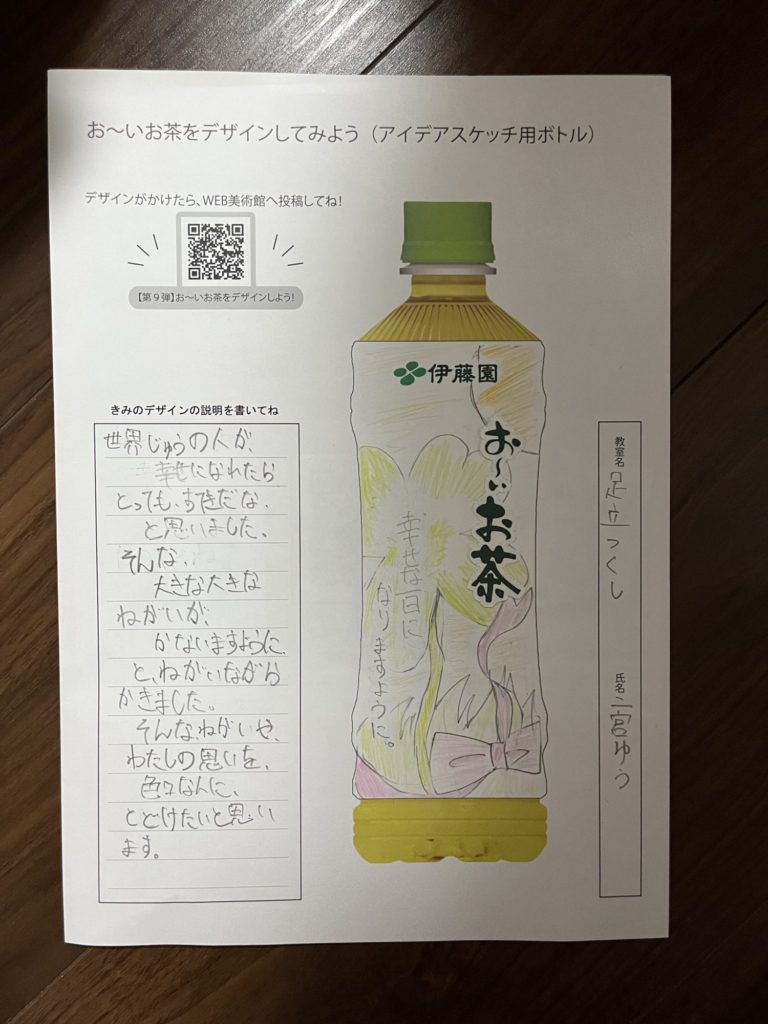 お～いお茶をデザインしてみよう（アイデアスケッチ用ボトル）
デザインがかけたら、WEB美術館へ投稿してね！
【第９弾】お～いお茶をデザインしよう！
きみのデザインの説明を書いてね
世界じゅうの人が、
幸せになれたら
とっても、すてきだな、
と思いました。
そんな、
大きな大きな
ねがいが、
かないますように、
と、ねがいながら
かきました。
そんな、ねがいや、
わたしの思いを、
色々なんに、
とどけたいと思い
ます。
伊藤園
お～いお茶
幸せな一日に
なりますように。
教室名
足立つくし
氏名
二宮ゆう